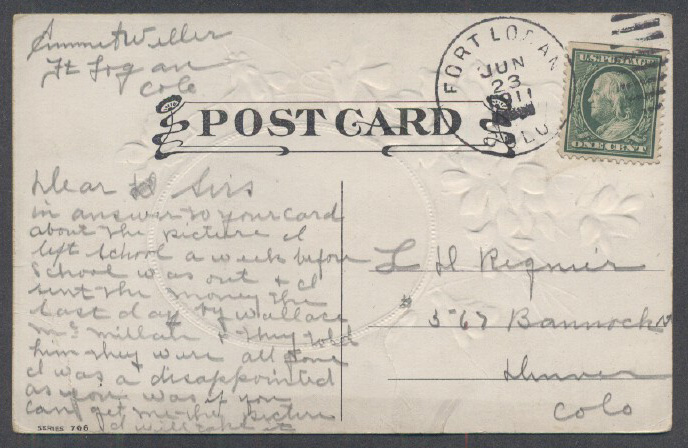 Emmet Weller
Ft Logan
Colo
FORT LOGAN
JUN
23
1911
COLO.
U.S. POSTAGE
ONE CENT
POST CARD
Dear Sirs
in answer to your card
about the picture I
left school a week before
school was out & I
sent the money the
last day by Wallace
Mc Millan & they told
him they were all gone
I was a disappointed
as you was if you
can get me the picture
I will take it
L H Regnier
567 Bannock
Denver
Colo
SERIES 706